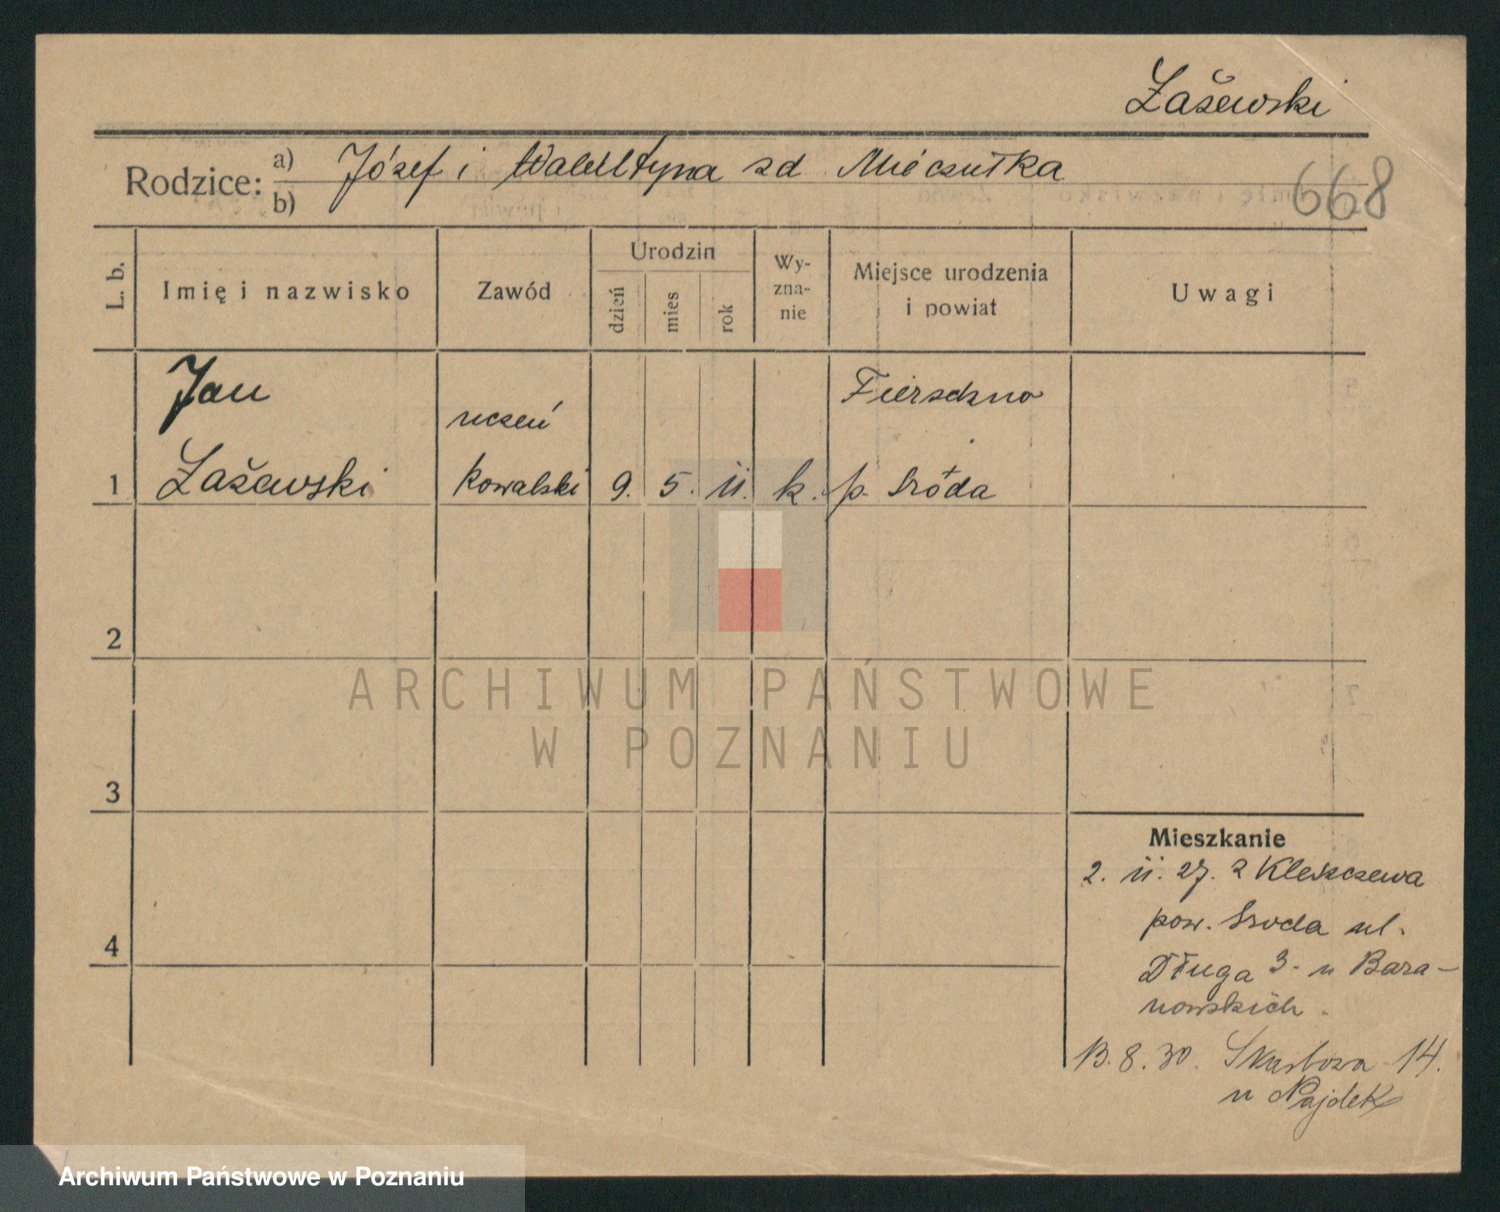 Łażewski
Rodzice: a) Józef i Walentyna zd
b)
668
L. b.
Imię i nazwisko
Zawód
Urodzin
dzień
mies
rok
Wy-
zna-
nie
Miejsce urodzenia
i powiat
Uwagi
Jan
uczeń
1 Łażewski
kowalski
9. 5. 11. k.
p. Sróda
2
3
4
Mieszkanie
2. 11. 27. z Kleszczewa
pow. Sroda ul.
Długa 3. u Bara-
nowskich.
13. 8. 30. Skarbowa 14.
u Najdek
ARCHIWUM PAŃSTWOWE
W POZNANIU
Archiwum Państwowe w Poznaniu